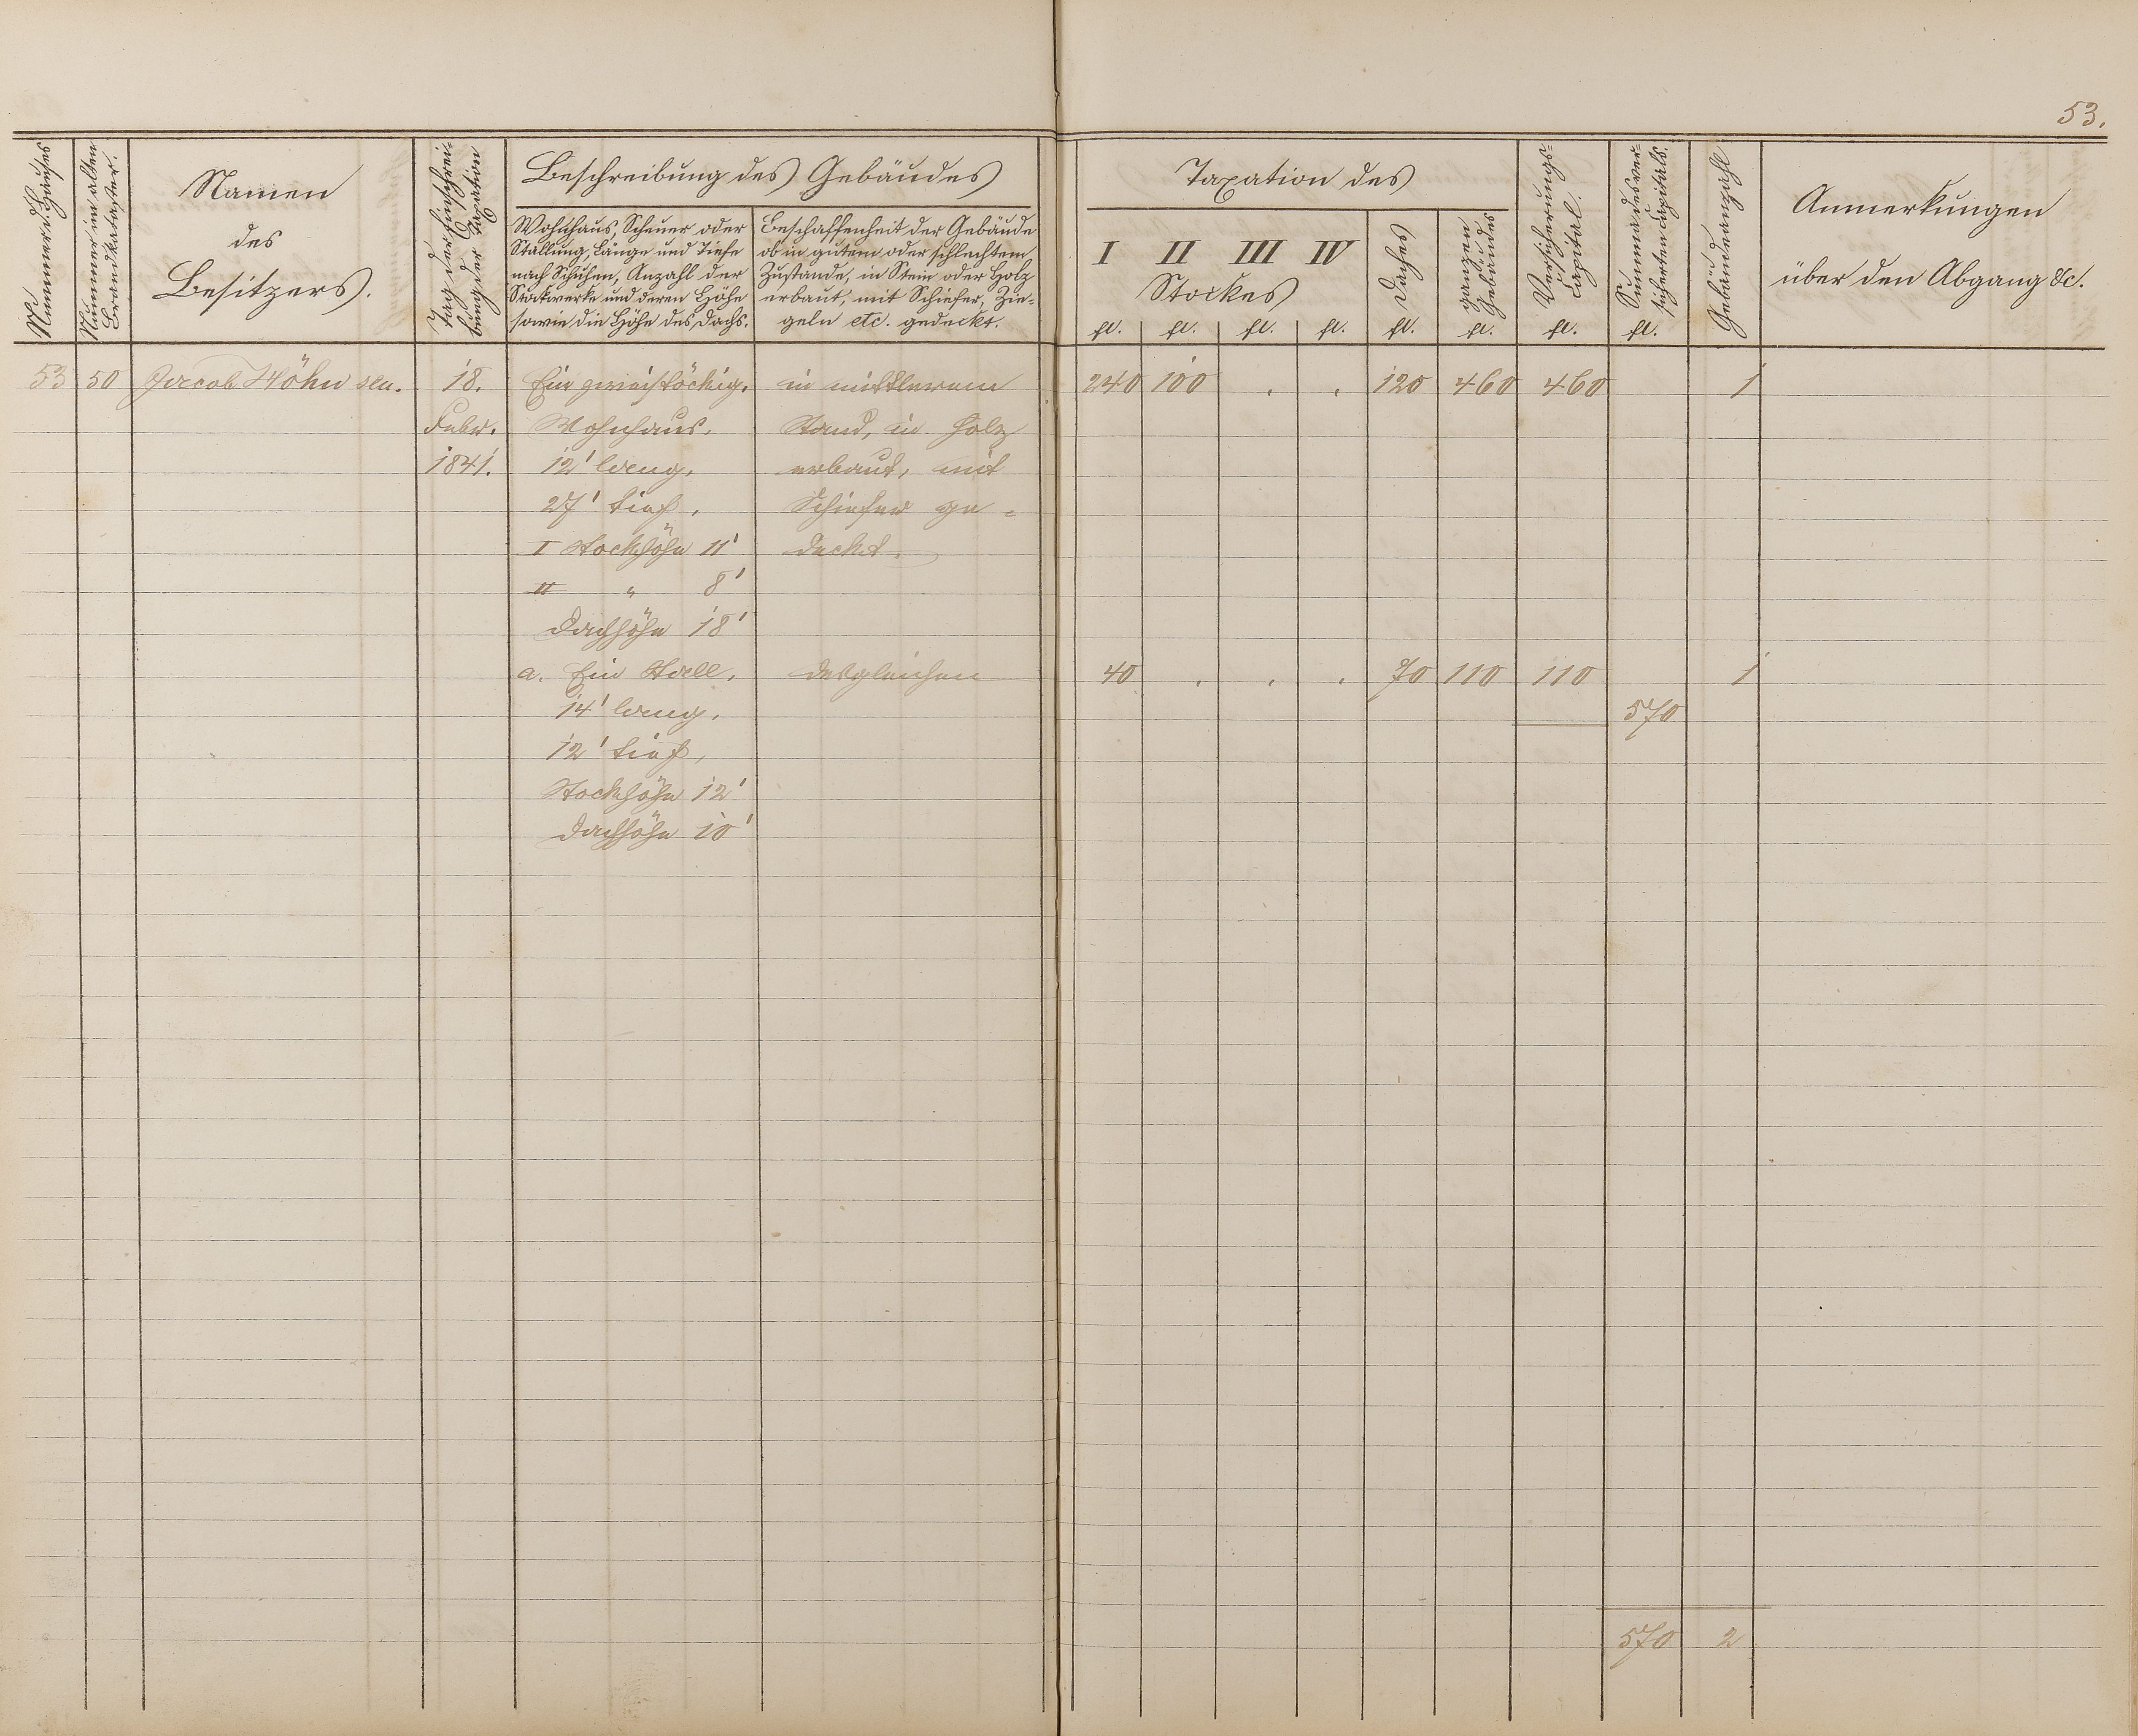 53.
Nummer d. Hauses
Nummer im alten
Brandkataster.
Namen
des
Besitzers.
Tag der Einschrei-
bung der Taxation
Beschreibung des Gebäudes
Wohnhaus, Scheuer oder
Stallung, Länge und Tiefe
nach Schuhen, Anzahl der
Stockwerke und deren Höhe
sowie die Höhe des Dachs.
Beschaffenheit der Gebäude
ob in gutem oder schlechtem
Zustande, in Stein oder Holz
erbaut, mit Schiefer, Zie-
geln etc. gedeckt.
Taxation des
I II III IV
Stockes
Daches
ganzen
Gebäudes
Versicherungs-
Capital.
Summa des ver-
sicherten Capitals.
Gebäudeanzahl
Anmerkungen
über den Abgang &c.
fl. fl. fl. fl. fl. fl. fl. fl.
53 50 Jacob Höhn sen. 18. Ein zweistöckig. in mittlerem 240 100 . . 120 460 460 1
Febr. Wohnhaus. Stand, in Holz
1841. 12' lang, erbaut, mit
27' tief, Schiefer ge-
I Stockhöhe 11' deckt.
II " 8'
Dachhöhe 18'
a. Ein Stall, desgleichen 40 . . . 70 110 110 1
14' lang, 570
12' tief,
Stockhöhe 12'
Dachhöhe 10'
570 2